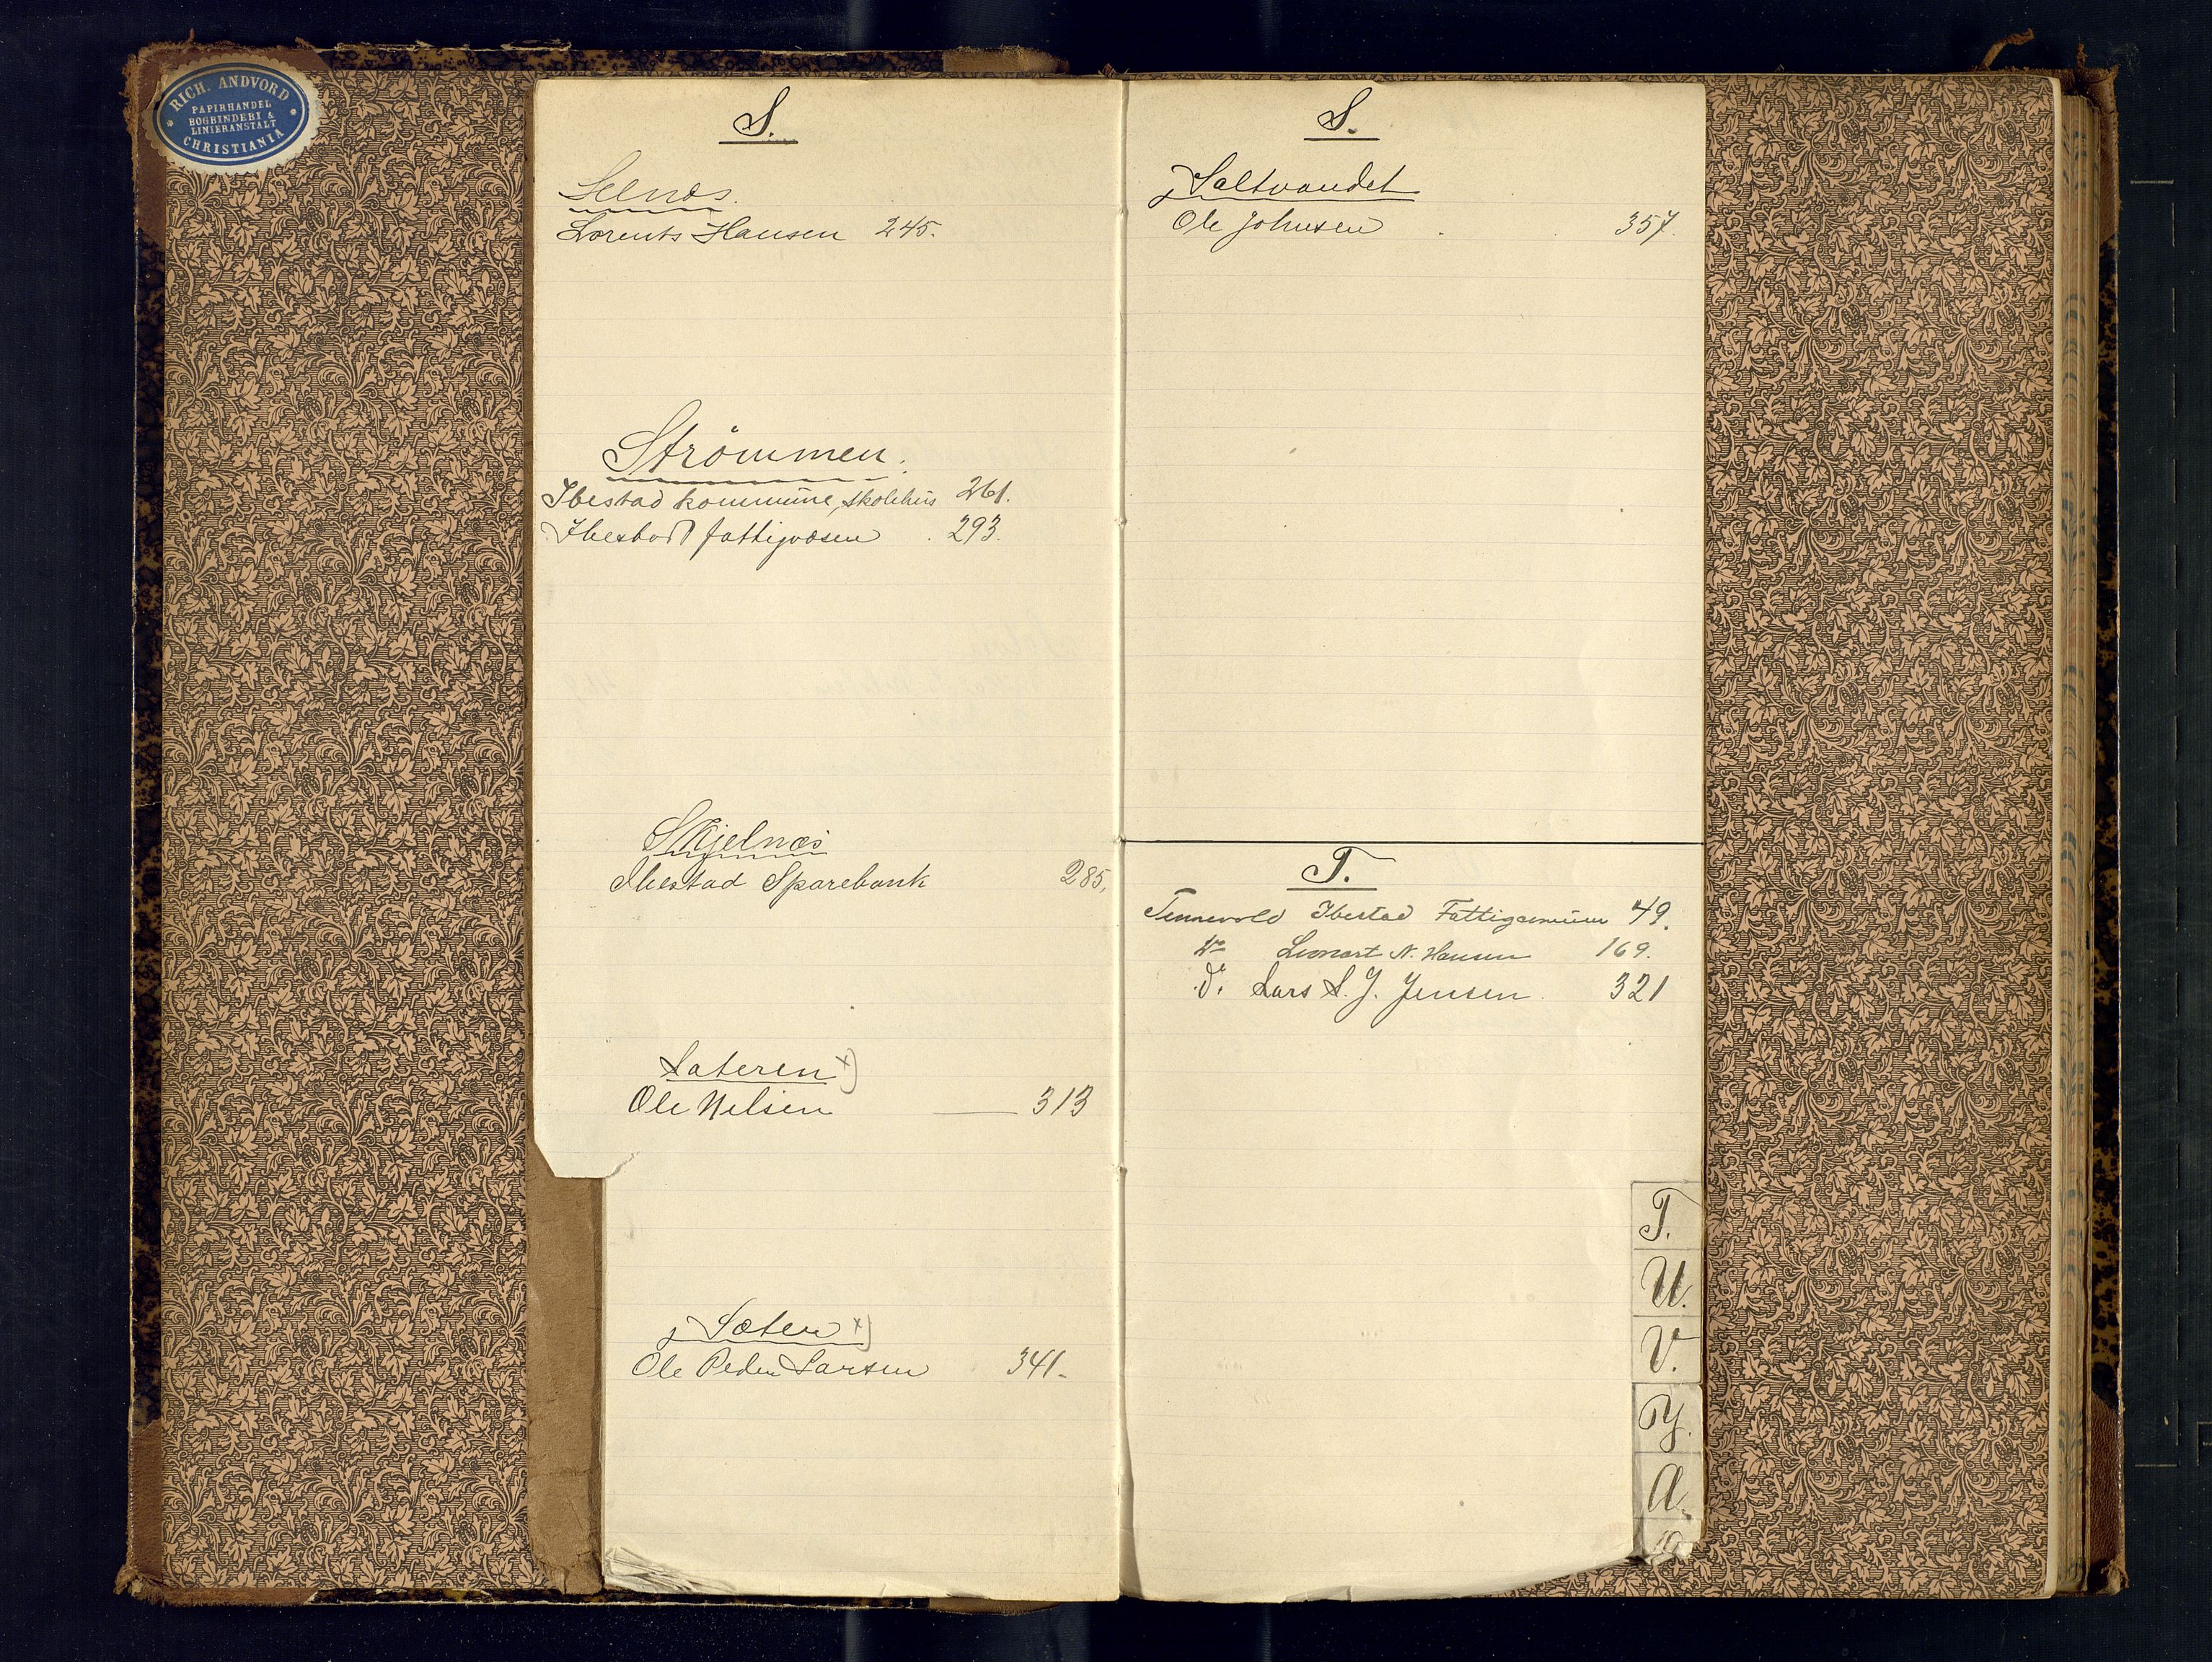 RICH. ANDVORD
PAPIRHANDEL
BOGBINDERI &
LINIERANSTALT
CHRISTIANIA
S.
Selnæs.
Lorents Hansen 245.
Strömmen.
Ibestad kommune, skolehus 261.
Ibestad fattigvæsen . 293.
Skjelnæs
Ibestad Sparebank 285.
Sæteren x)
Ole Nilsen — 313
Sæter x)
Ole Peder Larsen 341.
S.
Saltvandet
Ole Johnsen . 357.
T.
Tennevold Ibestad 49.
do Leonart N. Hansen 169.
do Lars S. J. Jensen. 321
T.
U.
V.
Y.